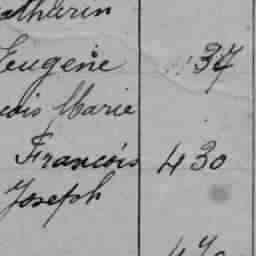 athurin
Eugène 37
cois Marie
François 430
Joseph